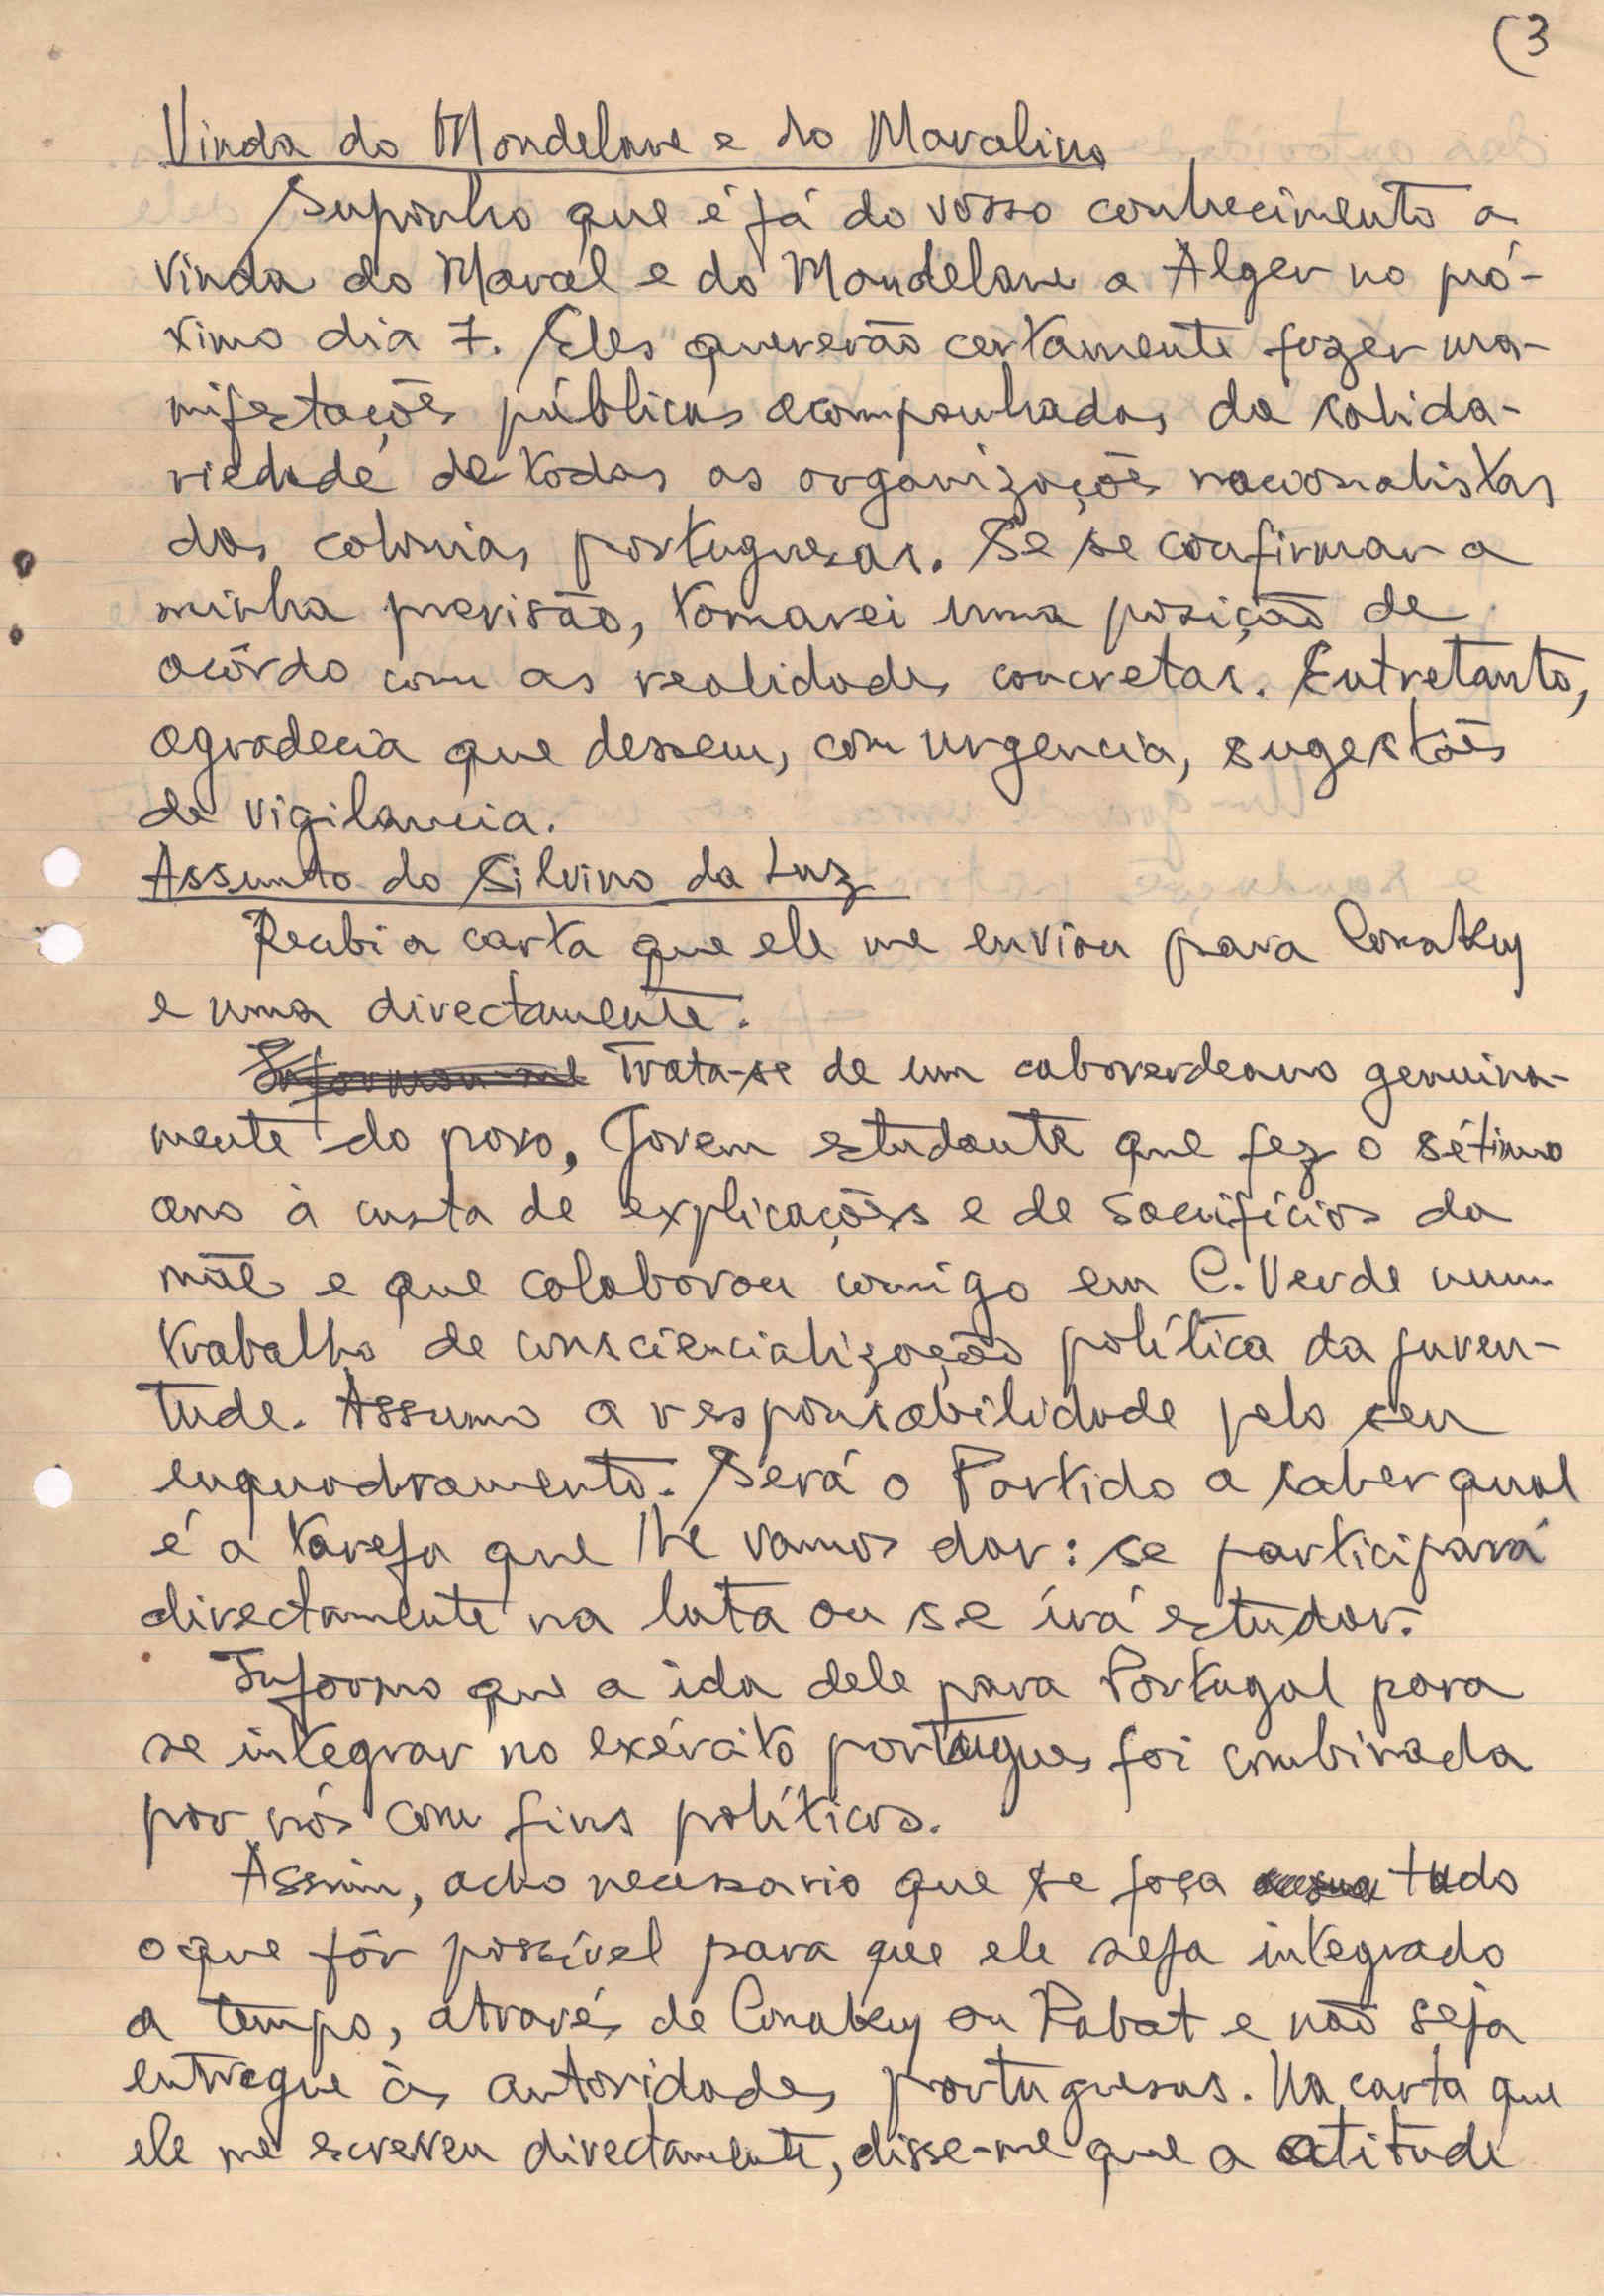 (3
Vinda do Mondelane e do Marcelino
Suponho que é já do vosso conhecimento a
vinda do Marcel e do Mondelane a Alger no pró-
ximo dia 7. Eles quererão certamente fazer ma-
nifestações públicas acompanhadas da solida-
riedade de todas as organizações nacionalistas
das colonias portuguesas. Se se confirmar a
minha previsão, tomarei uma posição de
acôrdo com as realidades concretas. Entretanto,
agradecia que dessem, com urgencia, sugestões
de vigilancia.
Assunto do Silvino da Luz
Recebi a carta que ele me enviou para Conakry
e uma directamente.
Informou-me Trata-se de um caboverdeano genuina-
mente do povo, Jovem estudante que fez o sétimo
ano à custa de explicações e de sacrifícios da
mãe e que colaborou comigo em C. Verde num
trabalho de consciencialização política da juven-
tude. Assumo a responsabilidade pelo seu
enquadramento. Será o Partido a saber qual
é a tarefa que lhe vamos dar: se participará
directamente na luta ou se irá estudar.
Informo que a ida dele para Portugal para
se integrar no exército portugues foi combinada
por nós com fins políticos.
Assim, acho necessario que se faça tudo
o que fôr possível para que ele seja integrado
a tempo, através de Conakry ou Rabat e não seja
entregue às autoridades portuguesas. Na carta que
ele me escreveu directamente, disse-me que a atitude